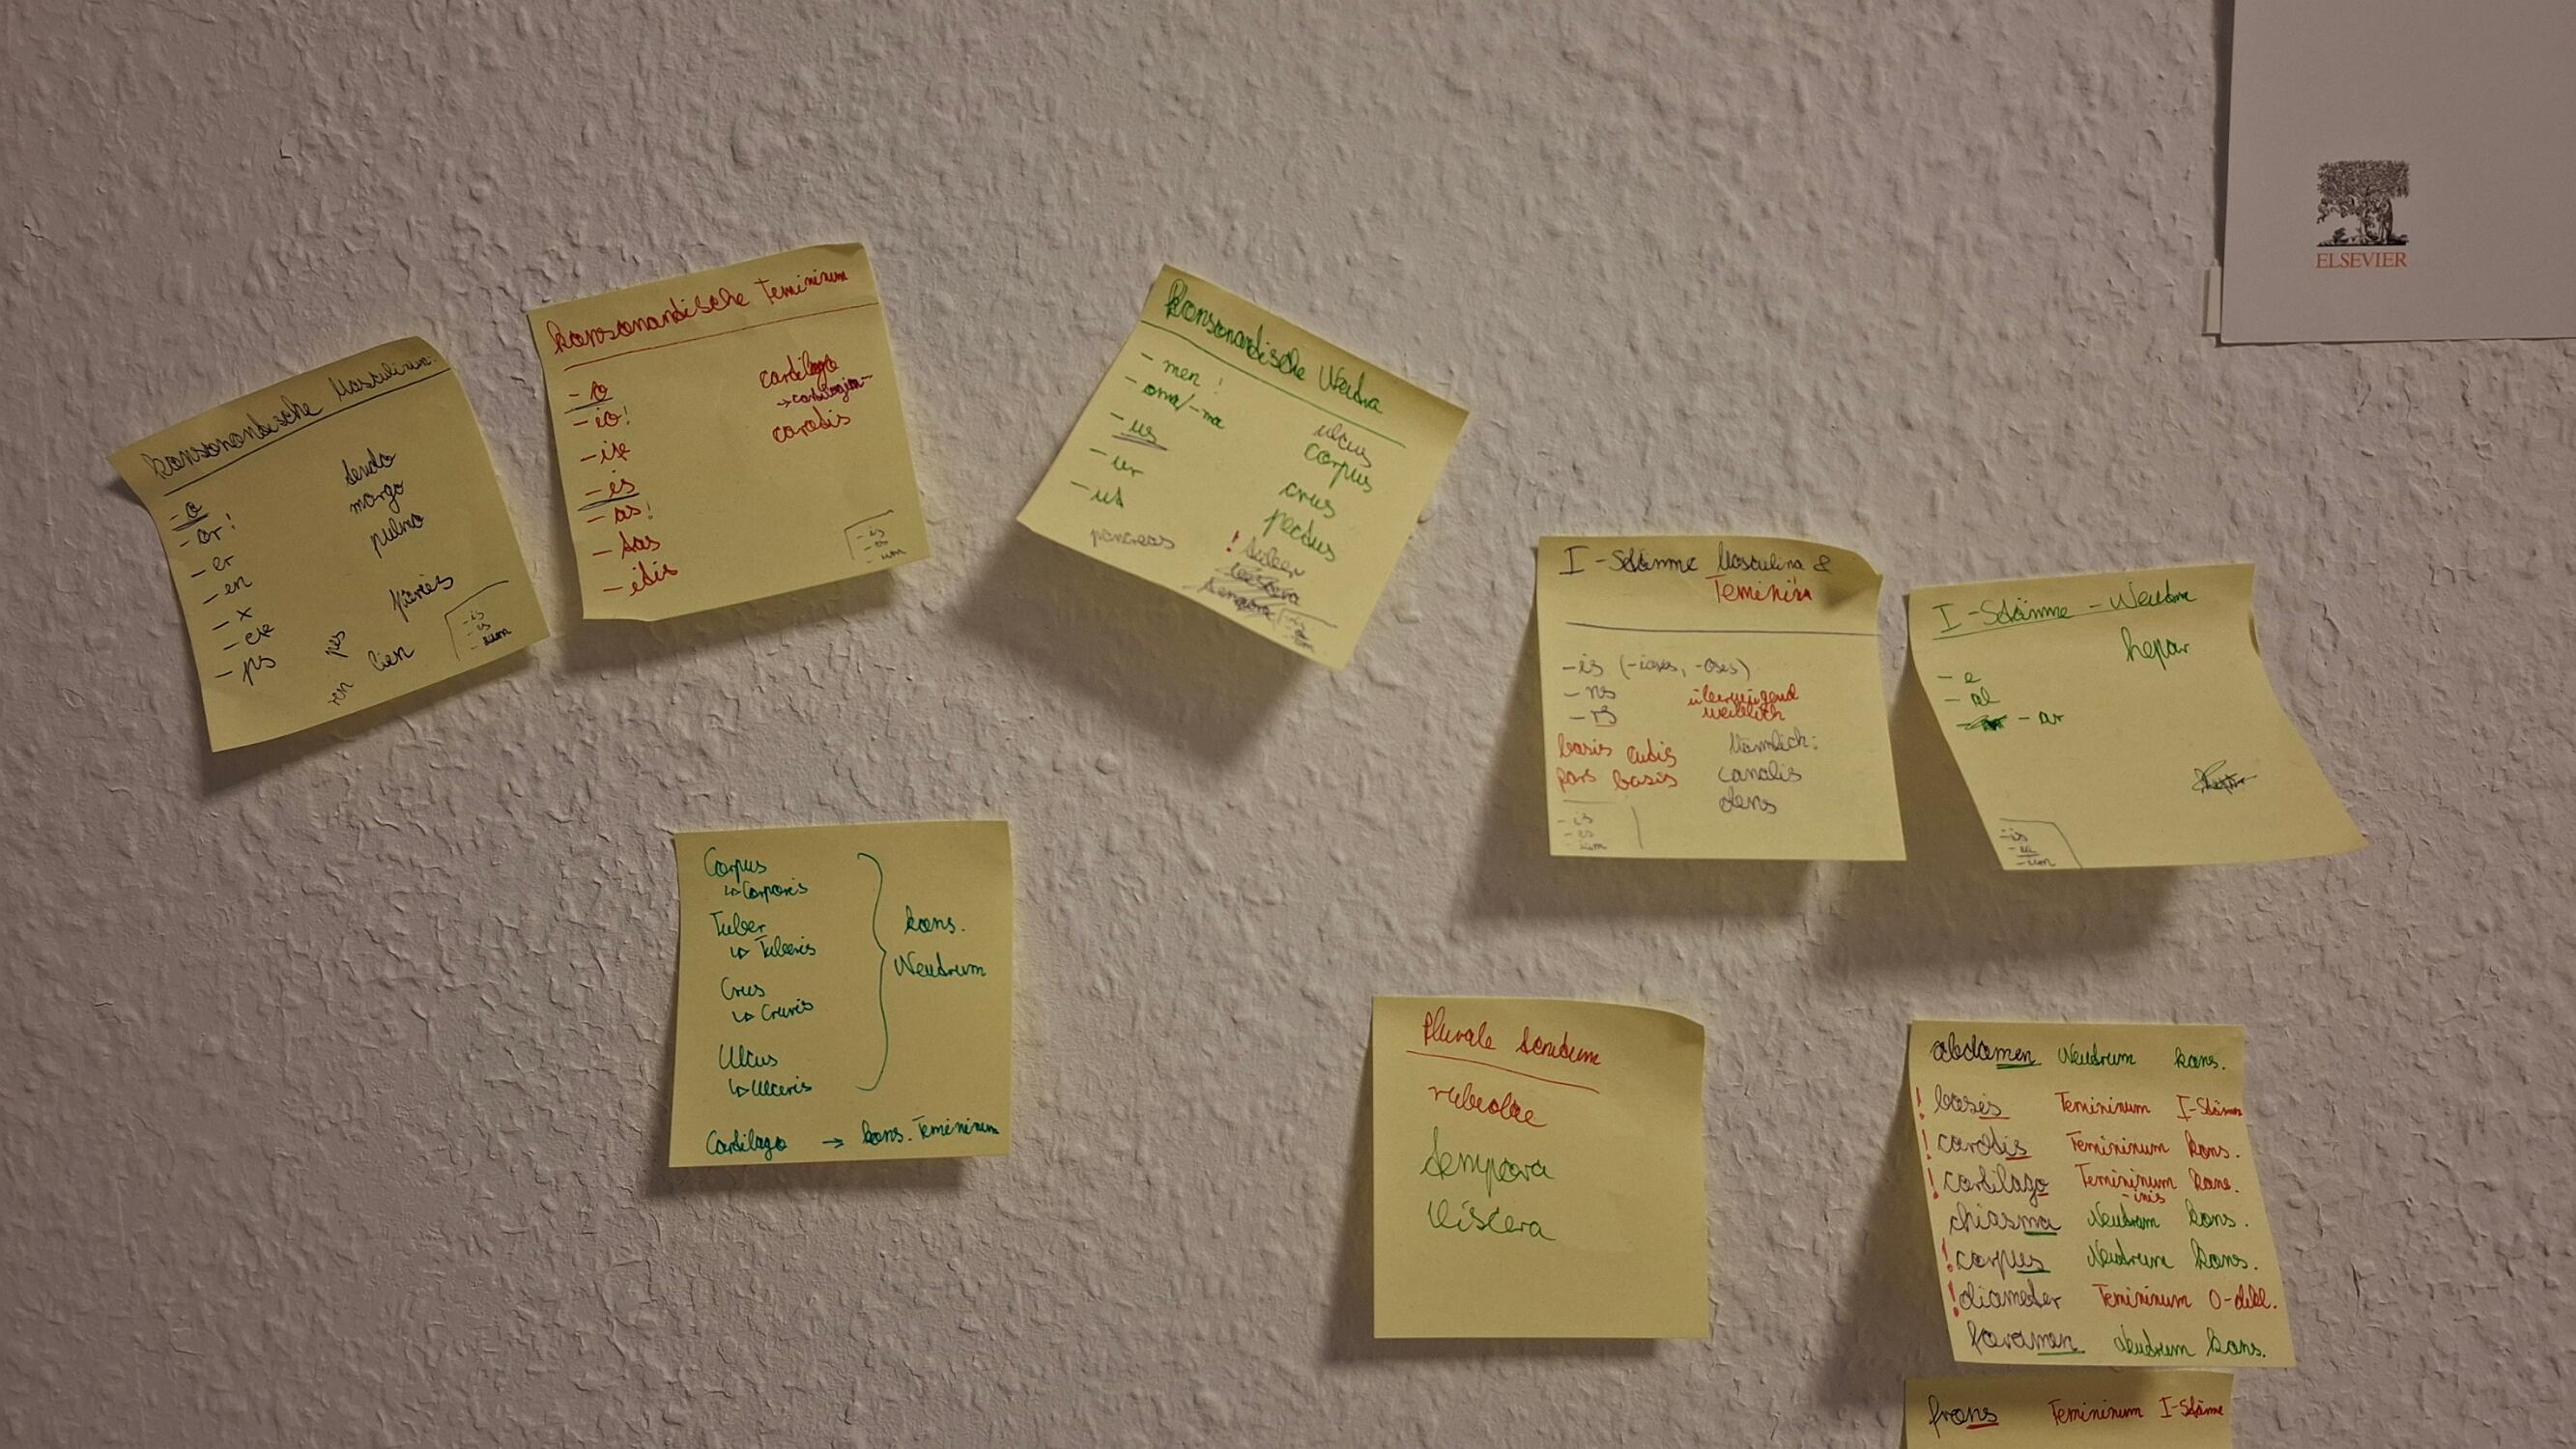 ELSEVIER
konsonantische Masculinum:
-o
-or!
-er
-en
-x
-ex
-ps
tendo
margo
pulmo
paries
pes
lien
ren
-is
-um
konsonantische Femininum
-o
-io!
-is
-as!
-tas
-itis
cartilago
carotis
-is
-um
konsonantische Neutra
-men!
-oma/-ma
-us
-ur
-ut
pancreas
ulcus
corpus
crus
pectus
! tuber
viscera
tempora
I-Stämme Masculina &
Feminina
-is (-iasis, -osis)
-ns
-rs
überwiegend
weiblich
basis cutis
pars basis
Männlich:
canalis
dens
-is
-es
-ium
I-Stämme - Neutra
hepar
-e
-al
-ar
-is
-ia
-ium
Corpus
↳ Corporis
Tuber
↳ Tuberis
Crus
↳ Cruris
Ulcus
↳ Ulceris
kons.
Neutrum
Cartilago → kons. Femininum
Plurale tantum
rubeolae
tempora
Viscera
abdomen Neutrum kons.
! basis Femininum I-Stämme
! carotis Femininum kons.
! cartilago Femininum kons.
-inis
chiasma Neutrum kons.
! corpus Neutrum kons.
! diameter Femininum O-dekl.
foramen Neutrum kons.
frons Femininum I-Stäme